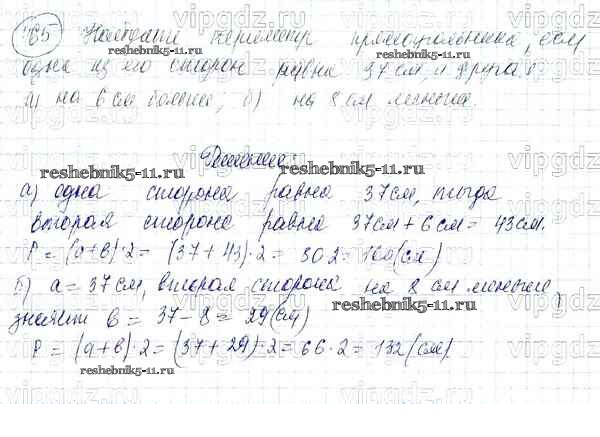 785 Найдите периметр прямоугольника, если
одна из его сторон равна 37 см, а другая
а) на 6 см больше; б) на 8 см меньше.
Решение:
а) одна сторона равна 37 см, тогда
вторая сторона равна 37 см + 6 см = 43 см.
P = (a+b)·2 = (37+43)·2 = 80·2 = 160 (см)
б) a = 37 см, вторая сторона на 8 см меньше,
значит b = 37 - 8 = 29 (см)
P = (a+b)·2 = (37+29)·2 = 66·2 = 132 (см)
reshebnik5-11.ru
reshebnik5-11.ru
reshebnik5-11.ru
reshebnik5-11.ru
reshebnik5-11.ru
reshebnik5-11.ru
vipgdz.ru